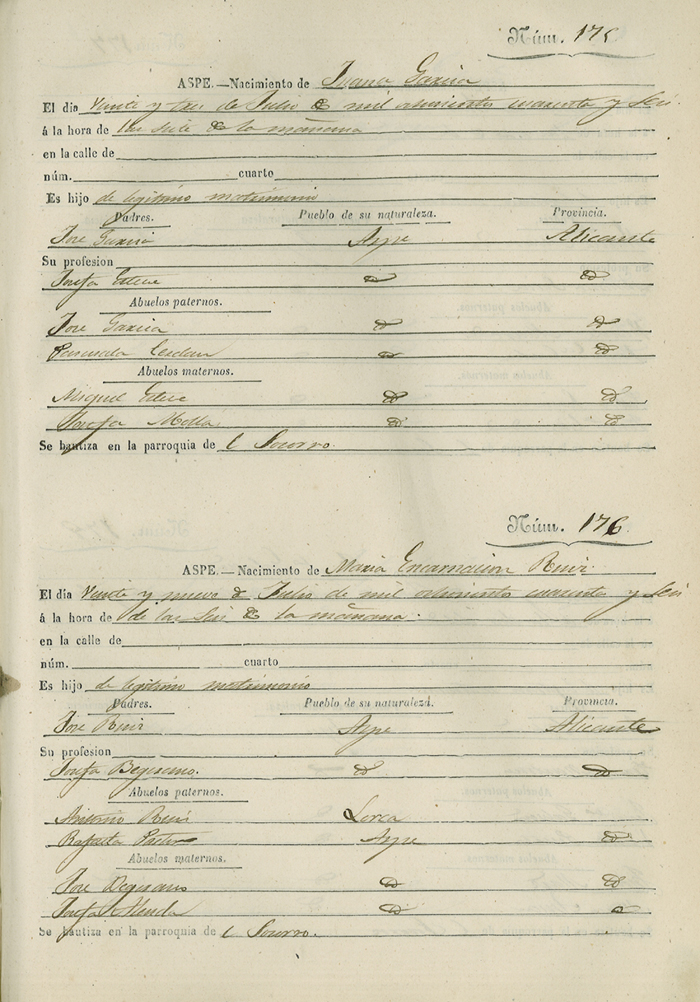 Núm. 175
ASPE.—Nacimiento de Juana Garcia
El dia Veinte y tres de Julio de mil ochocientos cuarenta y seis.
á la hora de las siete de la mañana
en la calle de
núm. cuarto
Es hijo de legitimo matrimonio
Padres. Pueblo de su naturaleza. Provincia.
Jose Garcia Aspe Alicante
Su profesion
Josefa id id
Abuelos paternos.
Jose Garcia id id
Pascuala id id
Abuelos maternos.
Miguel id id
Josefa Molla id id
Se bautiza en la parroquia de l Socorro.
Núm. 176.
ASPE.—Nacimiento de Maria Encarnacion Ruiz
El dia Veinte y nueve de Julio de mil ochocientos cuarenta y seis
á la hora de de las seis de la mañana.
en la calle de
núm. cuarto
Es hijo de legitimo matrimonio
Padres. Pueblo de su naturaleza. Provincia.
Jose Ruiz Aspe Alicante
Su profesion
Josefa id id
Abuelos paternos.
Antonio Ruiz Lorca
Rafaela Pastor Aspe id
Abuelos maternos.
Jose id id
Josefa id id
Se bautiza en la parroquia de l Socorro.